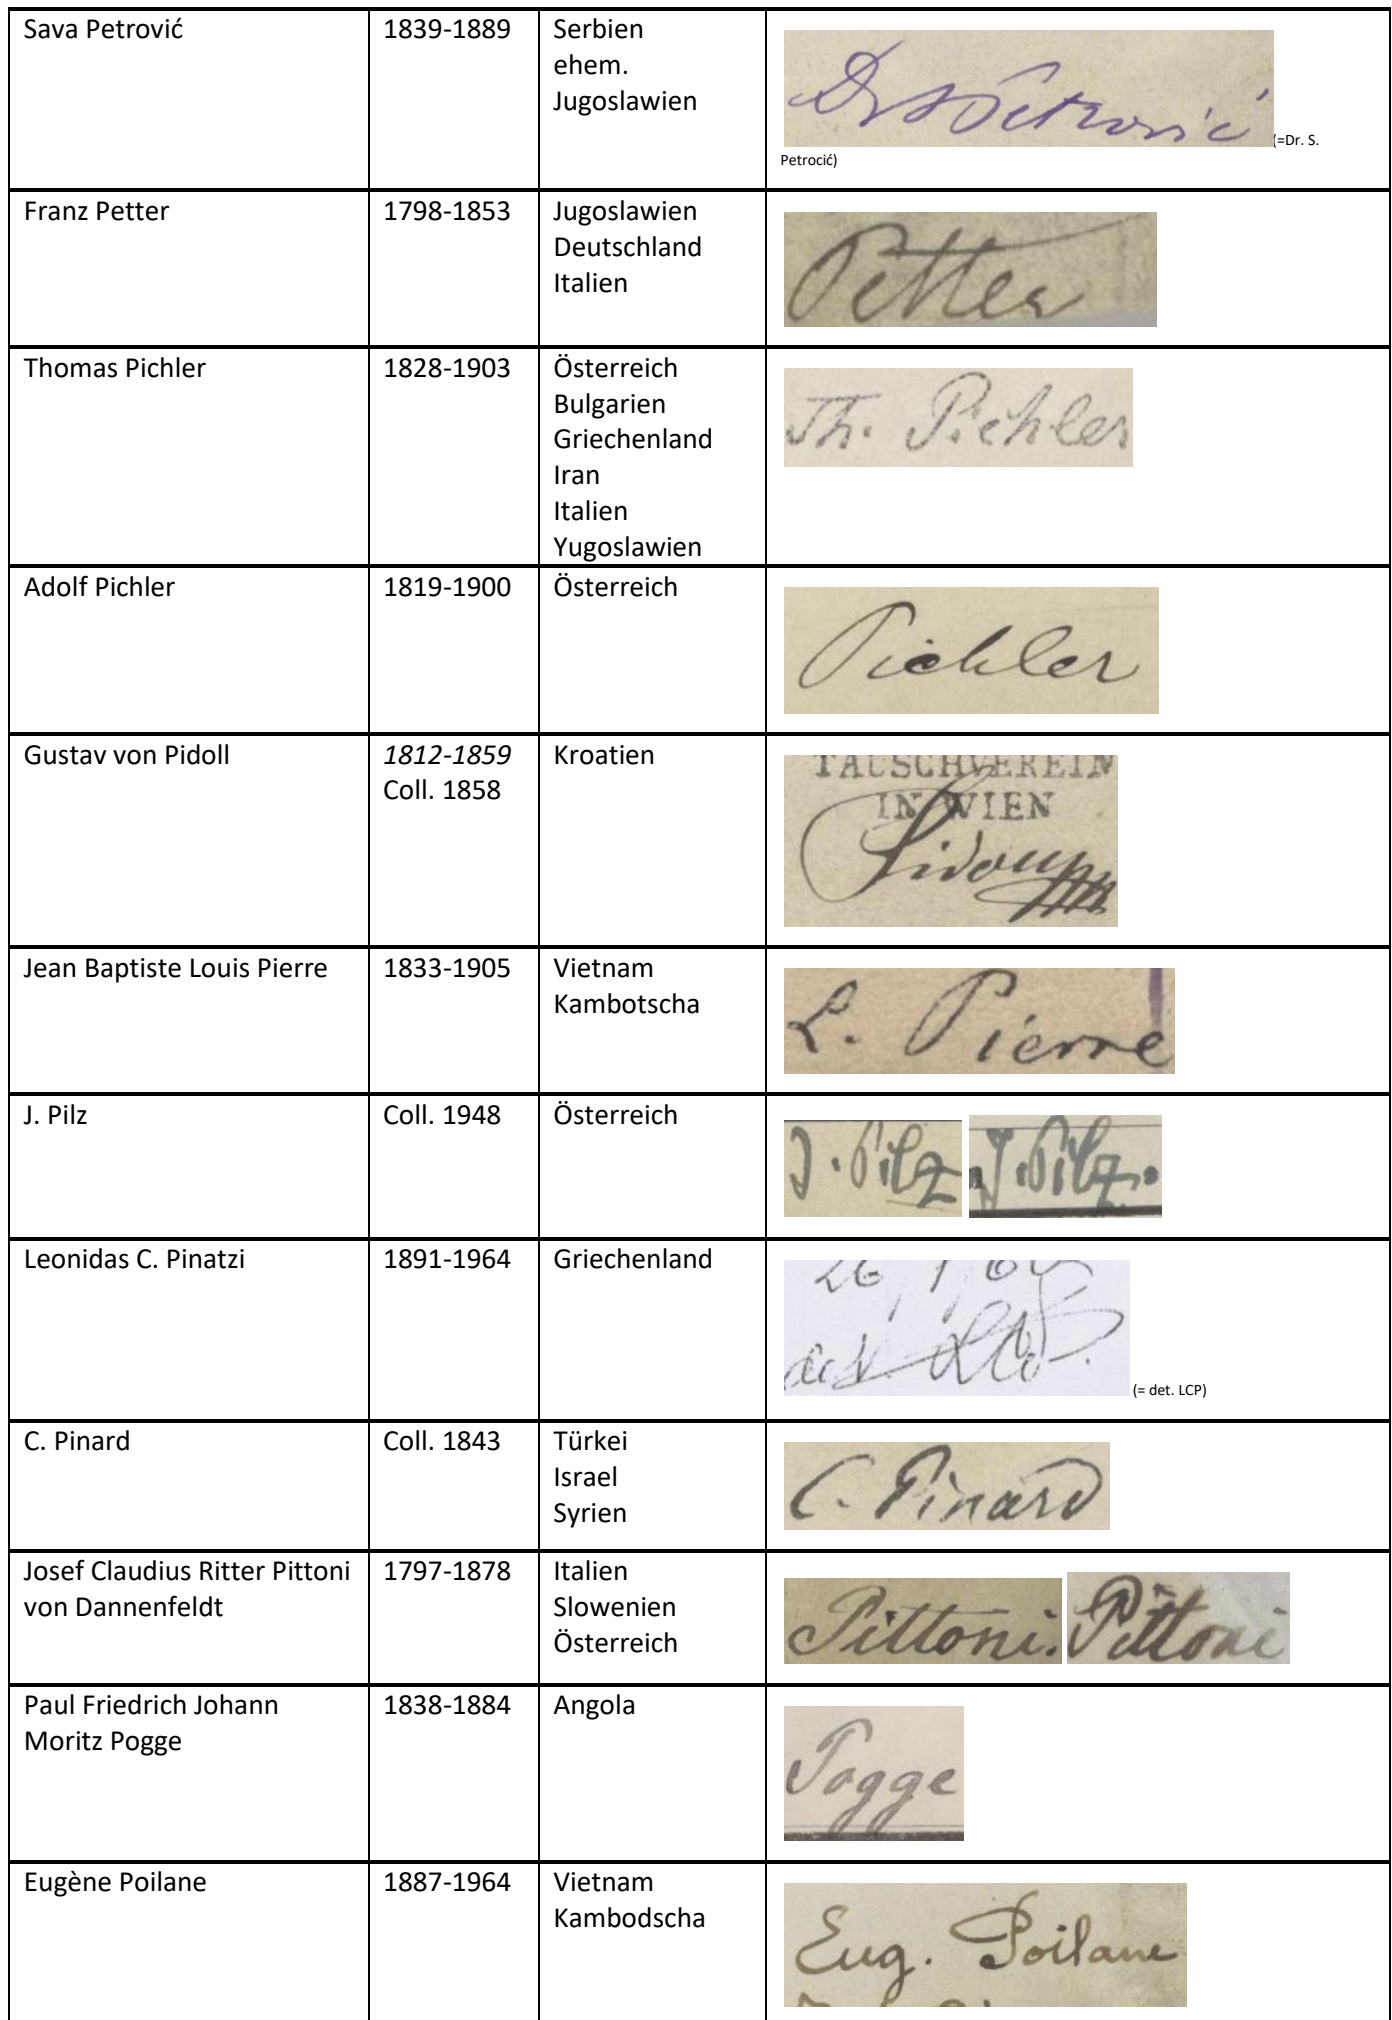 Sava Petrović 1839-1889 Serbien
ehem.
Jugoslawien
Dr S Petrović (=Dr. S.
Petrocić)
Franz Petter 1798-1853 Jugoslawien
Deutschland
Italien
Petter
Thomas Pichler 1828-1903 Österreich
Bulgarien
Griechenland
Iran
Italien
Yugoslawien
Th. Pichler
Adolf Pichler 1819-1900 Österreich
Pichler
Gustav von Pidoll 1812-1859 Kroatien
Coll. 1858
TAUSCHVEREIN
IN WIEN
Jean Baptiste Louis Pierre 1833-1905 Vietnam
Kambotscha
L. Pierre
J. Pilz Coll. 1948 Österreich
J. Pilz J. Pilz.
Leonidas C. Pinatzi 1891-1964 Griechenland
det. LCP. (= det. LCP)
C. Pinard Coll. 1843 Türkei
Israel
Syrien
C. Pinard
Josef Claudius Ritter Pittoni 1797-1878 Italien
von Dannenfeldt Slowenien
Österreich
Pittoni. Pittoni
Paul Friedrich Johann 1838-1884 Angola
Moritz Pogge
Pogge
Eugène Poilane 1887-1964 Vietnam
Kambodscha
Eug. Poilane